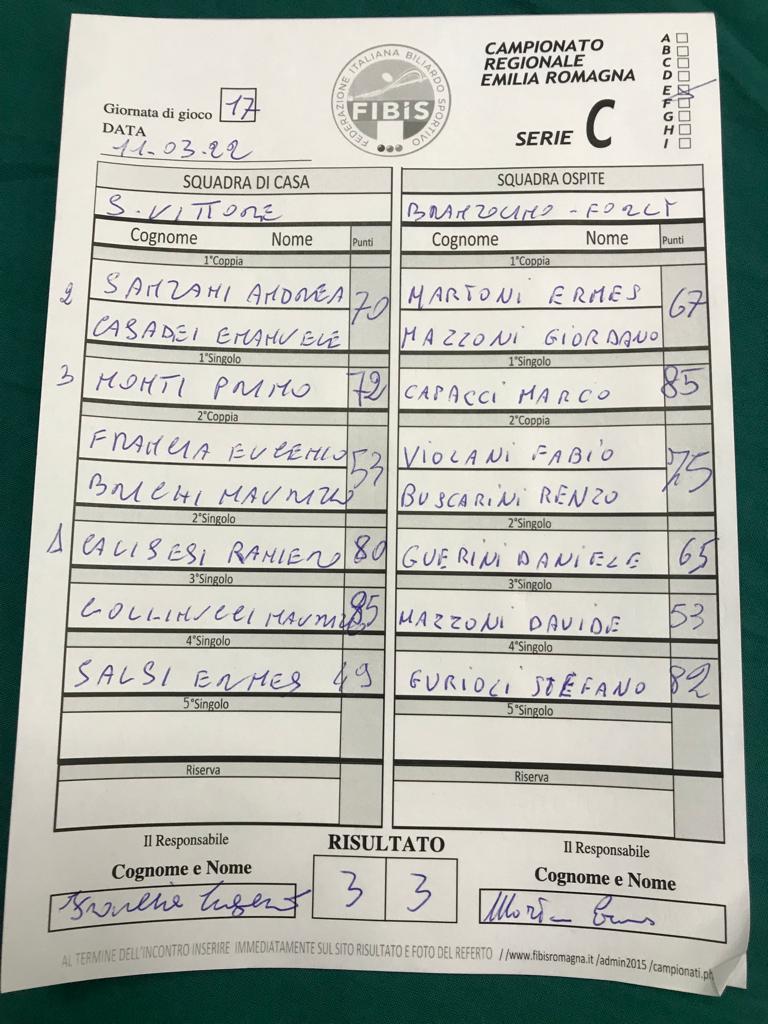 Giornata di gioco 17
DATA
11-03-22
FEDERAZIONE ITALIANA BILIARDO SPORTIVO
FIBiS
CAMPIONATO
REGIONALE
EMILIA ROMAGNA
SERIE C
A
B
C
D
E
F
G
H
I
SQUADRA DI CASA
S. VITTORE
Cognome Nome Punti
1°Coppia
2 SANZANI ANDREA 70
CASADEI EMANUELE
1°Singolo
3 MONTI PRIMO 72
2°Coppia
FRANCIA EUGENIO 53
BRICHI MAURIZIO
2°Singolo
1 CALISESI RANIERO 80
3°Singolo
COLLINUCCI MAURIZIO 85
4°Singolo
SALSI ERMES 49
5°Singolo
Riserva
SQUADRA OSPITE
BRANZOLINO - FORLI
Cognome Nome Punti
1°Coppia
MARTONI ERMES 67
MAZZONI GIORDANO
1°Singolo
CAPACCI MARCO 85
2°Coppia
VIOLANI FABIO 75
BUSCARINI RENZO
2°Singolo
GUERINI DANIELE 65
3°Singolo
MAZZONI DAVIDE 53
4°Singolo
GURIOLI STEFANO 82
5°Singolo
Riserva
Il Responsabile
Cognome e Nome
RISULTATO
3 3
Il Responsabile
Cognome e Nome
AL TERMINE DELL'INCONTRO INSERIRE IMMEDIATAMENTE SUL SITO RISULTATO E FOTO DEL REFERTO //www.fibisromagna.it /admin2015 /campionati.ph